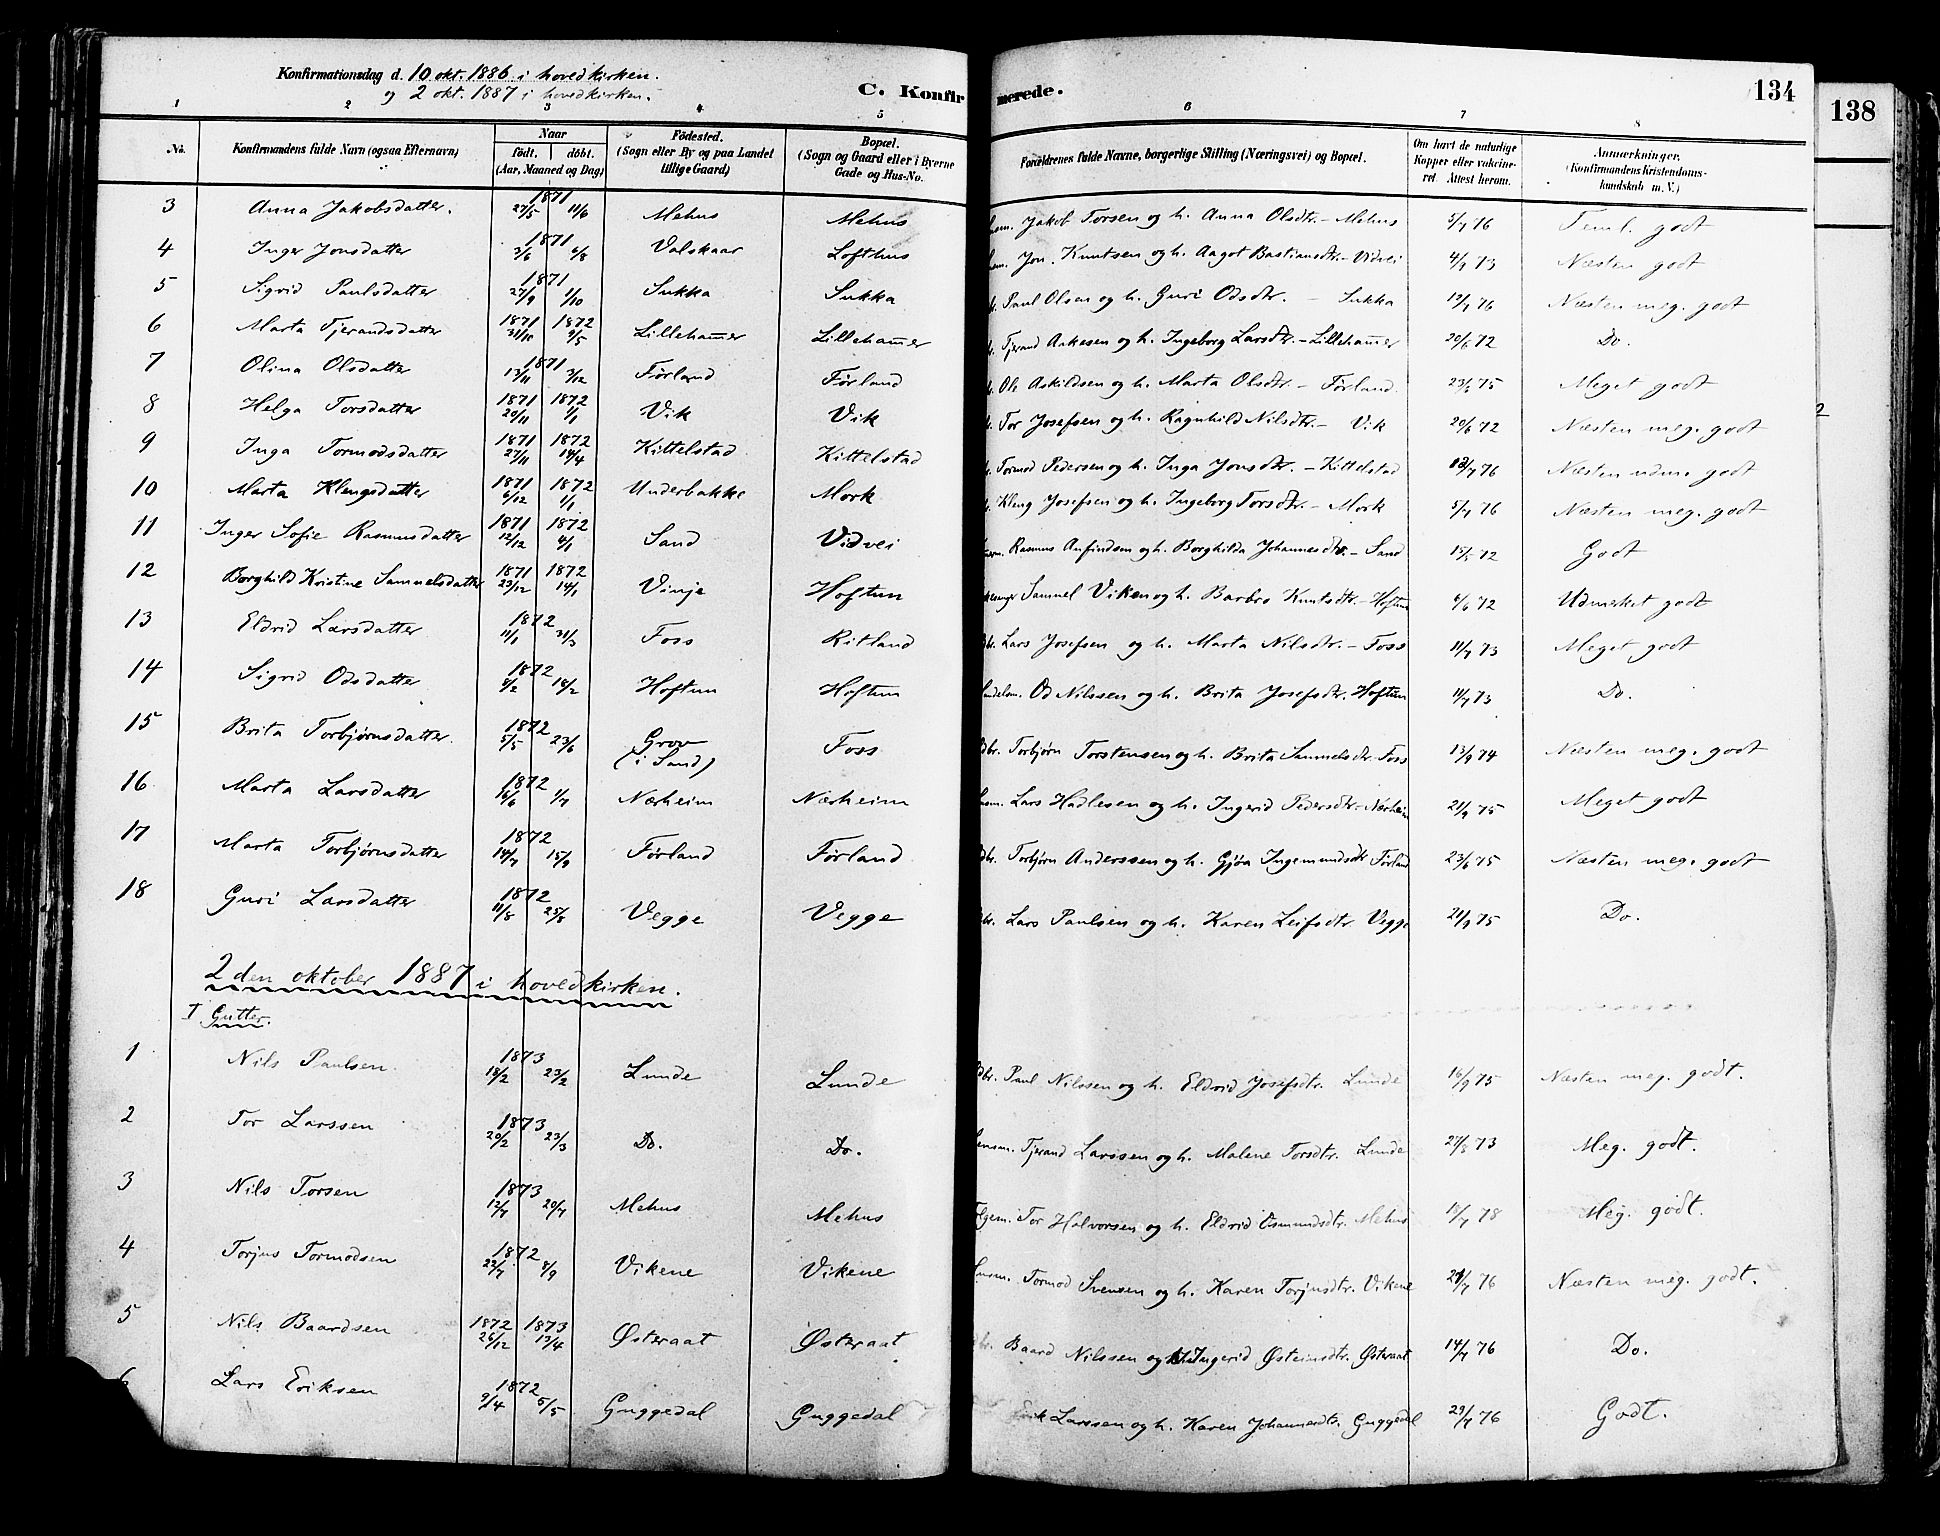 Konfirmationsdag d. 10 okt. 1886 i hovedkirken.
og 2 okt. 1887 i hovedkirken.
C. Konfirmerede.
134
138
1 2 3 4 5 6 7 8
No. Konfirmandens fulde Navn (ogsaa Efternavn) Naar født, døbt. (Aar, Maaned og Dag) Fødested. (Sogn eller By og paa Landet tillige Gaard) Bopæl. (Sogn og Gaard eller i Byerne Gade og Hus-No. Forældrenes fulde Navne, borgerlige Stilling (Næringsvei) og Bopæl. Om havt de naturlige Kopper eller vakcineret. Attest herom. Anmærkninger. (Konfirmandens Kristendomskundskab m. V.)
3 Anna Jakobsdatter. 1871 27/5 11/6 Mehus Mehus Jakob Torsen og h. Anna Olsdtr. – Mehus 5/7 76 Teml. godt
4 Inger Jonsdatter 1871 3/6 6/8 Valskaar Lofthus Jon Knutsen og h. Aagot Bastiansdtr. – Vidvei 4/7 73 Næsten godt
5 Sigrid Paulsdatter 1871 27/9 1/10 Sukka Sukka Paul Olsen og h. Guri Odsdtr. – Sukka 12/7 76 Næsten meg. godt
6 Marta Tjerandsdatter 1871 31/10 1872 9/5 Lillehamer Lillehamer Tjerand Aakesen og h. Ingeborg Larsdtr. – Lillehamer 20/6 72 Do.
7 Olina Olsdatter 1871 13/11 3/12 Førland Førland Ole Askildsen og h. Marta Olsdtr – Førland 23/6 75 Meget godt
8 Helga Torsdatter 1871 20/11 1872 1/1 Vik Vik Tor Josefsen og h. Ragnhild Nilsdtr. – Vik 20/6 72 Næsten meg. godt
9 Inga Tormodsdatter 1871 27/11 1872 14/4 Kittelstad Kittelstad Tormod Pedersen og h. Inga Jonsdtr. – Kittelstad 12/7 76 Næsten udm. godt
10 Marta Klengsdatter 1871 6/12 1872 1/1 Underbakke Mork Kleng Josefsen og h. Ingeborg Torsdtr. – Mork 5/7 76 Næsten meg. godt
11 Inger Sofie Rasmusdatter 1871 12/12 1872 4/1 Sand Vidvei Rasmus Anfindsen og h. Borghilda Johannesdtr – Sand 15/5 72 Godt
12 Borghild Kristine Samuelsdatter 1871 23/12 1872 14/1 Vinje Hoftun Samuel Viken og h. Barbro Knutsdtr. – Hoftun 6/6 72 Udmerket godt
13 Eldrid Larsdatter 1872 11/1 31/3 Foss Ritland Lars Josefsen og h. Marta Nilsdtr. – Foss 11/7 73 Meget godt
14 Sigrid Odsdatter 1872 8/2 18/2 Hoftun Hoftun Od Nilssen og h. Brita Josefsdtr. Hoftun 11/7 73 Do.
15 Brita Torbjørnsdatter. 1872 5/5 23/6 Grov (i Sand) Foss Torbjørn Torstensen og h. Brita Samuelsdtr. Foss 13/9 74 Næsten meg. godt
16 Marta Larsdatter 1872 16/6 1/7 Nærheim Nærheim Lars Hadlesen og h. Ingerid Pedersdtr – Nærheim 21/9 75 Meget godt
17 Marta Torbjørnsdatter 1872 14/7 15/9 Førland Førland Torbjørn Anderssen og h. Gjøa Ingemundsdtr Førland 23/6 75 Næsten meg. godt
18 Guri Larsdatter 1872 11/8 25/8 Vegge Vegge Lars Paulsen og h. Karen Leifsdtr. Vegge 21/9 75 Do.
2 den oktober 1887 i hovedkirken.
I Gutter.
1 Nils Paulsen 1873 18/2 23/2 Lunde Lunde Paul Nilssen og h. Eldrid Josefsdtr. Lunde 16/9 75 Næsten meg. godt.
2 Tor Larssen 1873 20/2 23/3 Do. Do. Tjerand Larssen og h. Malene Torsdtr. Lunde 27/5 73 Meg. godt.
3 Nils Torsen 1873 12/7 20/7 Mehus Mehus Tor Halvorsen og h. Eldrid Osmundsdtr. Mehus 18/7 78 Meg. godt.
4 Torjus Tormodsen 1872 22/7 8/9 Vikene Vikene Tormod Svensen og h. Karen Torjusdtr. Vikene 21/7 76 Næsten meg. godt.
5 Nils Baardsen 1872 26/12 1873 13/4 Østeraat Østeraat Baard Nilssen og Ingerid Østeinsdtr. Østeraat 14/7 76 Do.
Lars Eriksen 1872 9/4 5/5 Guggedal Guggedal Erik Larssen og h. Karen Johannesdtr. Guggedal 29/7 76 Godt.